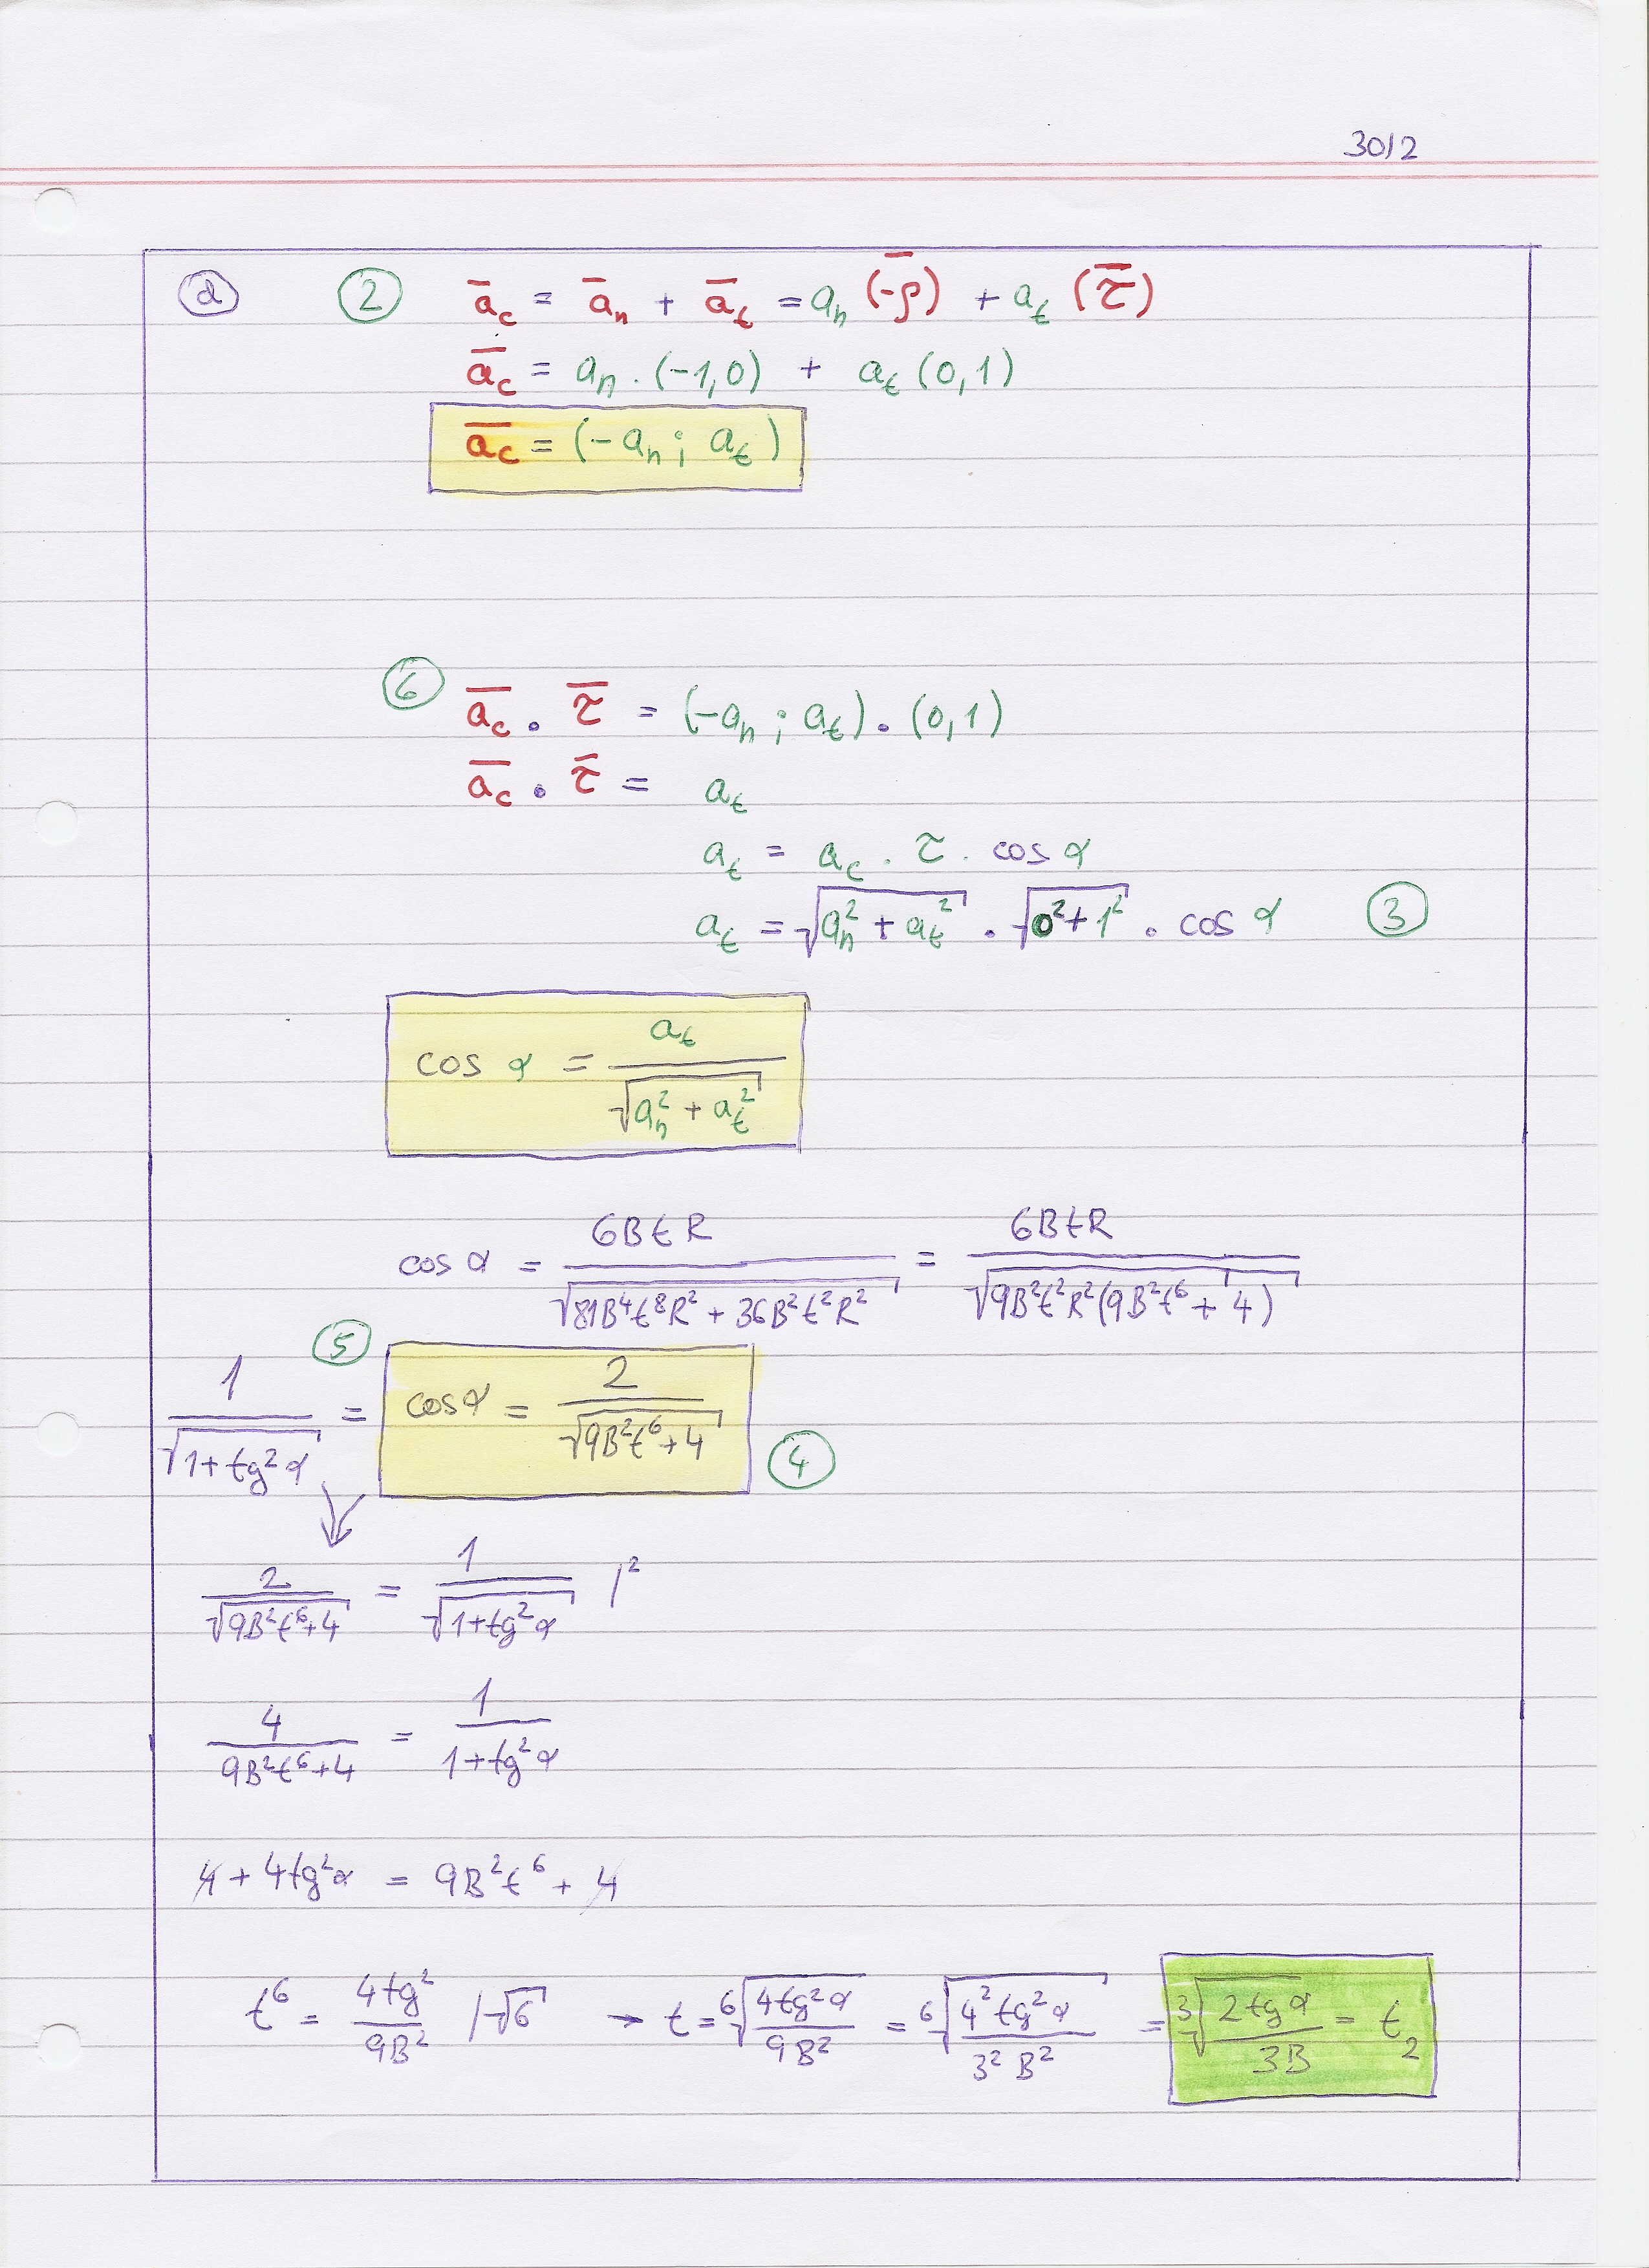 30/2
d ② a̅c = a̅n + a̅t = an (-ρ̅) + at (τ̅)
a̅c = an . (-1,0) + at (0,1)
a̅c = (-an ; at)
⑥ a̅c . τ̅ = (-an ; at) . (0,1)
a̅c . τ̅ = at
at = ac . τ . cos α
at = √(an² + at²) . √(0² + 1²) . cos α ③
cos α = at / √(an² + at²)
cos α = 6BtR / √(81B⁴t⁸R² + 36B²t²R²) = 6BtR / √(9B²t²R²(9B²t⁶ + 4))
⑤ 1 / √(1+tg²α) = cos α = 2 / √(9B²t⁶+4) ④
2 / √(9B²t⁶+4) = 1 / √(1+tg²α) /²
4 / (9B²t⁶+4) = 1 / (1+tg²α)
4 + 4tg²α = 9B²t⁶ + 4
t⁶ = 4tg² / 9B² /√6 → t = ⁶√(4tg²α / 9B²) = ⁶√(4²tg²α / 3²B²) = ³√(2tgα / 3B) = t₂